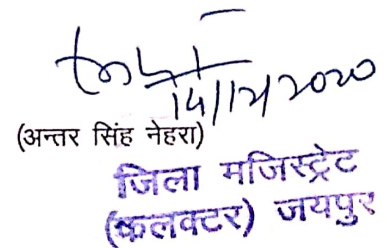 14/12/2020
(अन्तर सिंह नेहरा)
जिला मजिस्ट्रेट
(कलक्टर) जयपुर